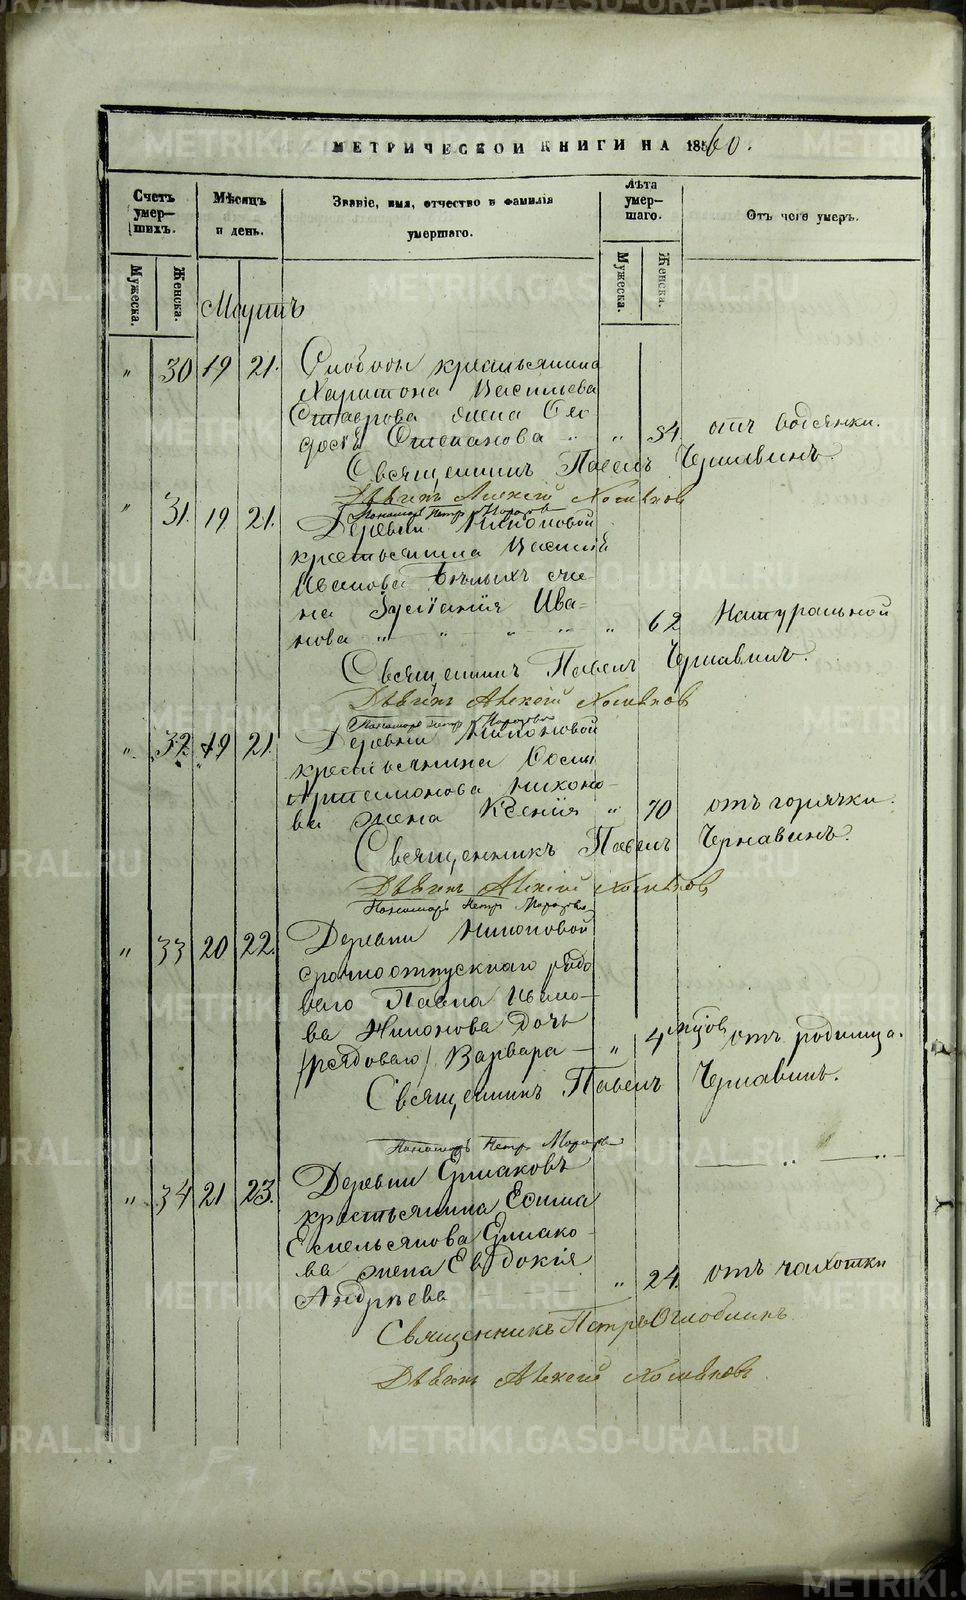 МЕТРИЧЕСКОЙ КНИГИ НА 1860.
Счетъ умер—шихъ.
Мѣсяцъ и день.
Званіе, имя, отчество и фамилія умершаго.
Лѣта умер—шаго.
Отъ чего умеръ.
Мужеска.
Женска.
Мужеска.
Женска.
Мартъ
" 30 19 21. Слободы крестьянина
Харитона Васильева
Ставрова жена Ѳео
досья Степанова " " 34 отъ водянки.
Священникъ Павелъ Чернавинъ.
Дьячекъ Алексѣй Хомяков
Пономарь Петръ Морозов
" 31. 19 21. Деревни Никоновой
крестьянина Василія
Иванова Бѣлыхъ же—
на Іуліанія Ива—
нова " " " " " 62 Натуральной
Священникъ Павелъ Чернавинъ.
Дьячекъ Алексѣй Хомяков
Пономарь Петръ Морозовъ
" 32. 19 21. Деревни Никоновой
крестьянина Осипа
Артемонова Никоно—
ва жена Ксенія " 70 отъ горячки.
Священникъ Павелъ Чернавинъ.
Дьячекъ Алексѣй Хомяков
Пономарь Петръ Морозовъ
" 33 20 22. Деревни Никоновой
срочноотпускнаго рядо
ваго Павла Ивано—
ва Никонова дочь
/рядоваго/ Варвара — " 4 отъ родимца.
Священникъ Павелъ Чернавинъ.
Пономарь Петръ Морозовъ
" 34 21 23. Деревни Ермаковъ
крестьянина Ефима
Емельянова Ермако—
ва жена Евдокія
Андрѣева " 24. отъ чахотки
Священникъ Петръ Оглоблинъ
Дьячекъ Алексѣй Хомяковъ.
METRIKI.GASO-URAL.RU